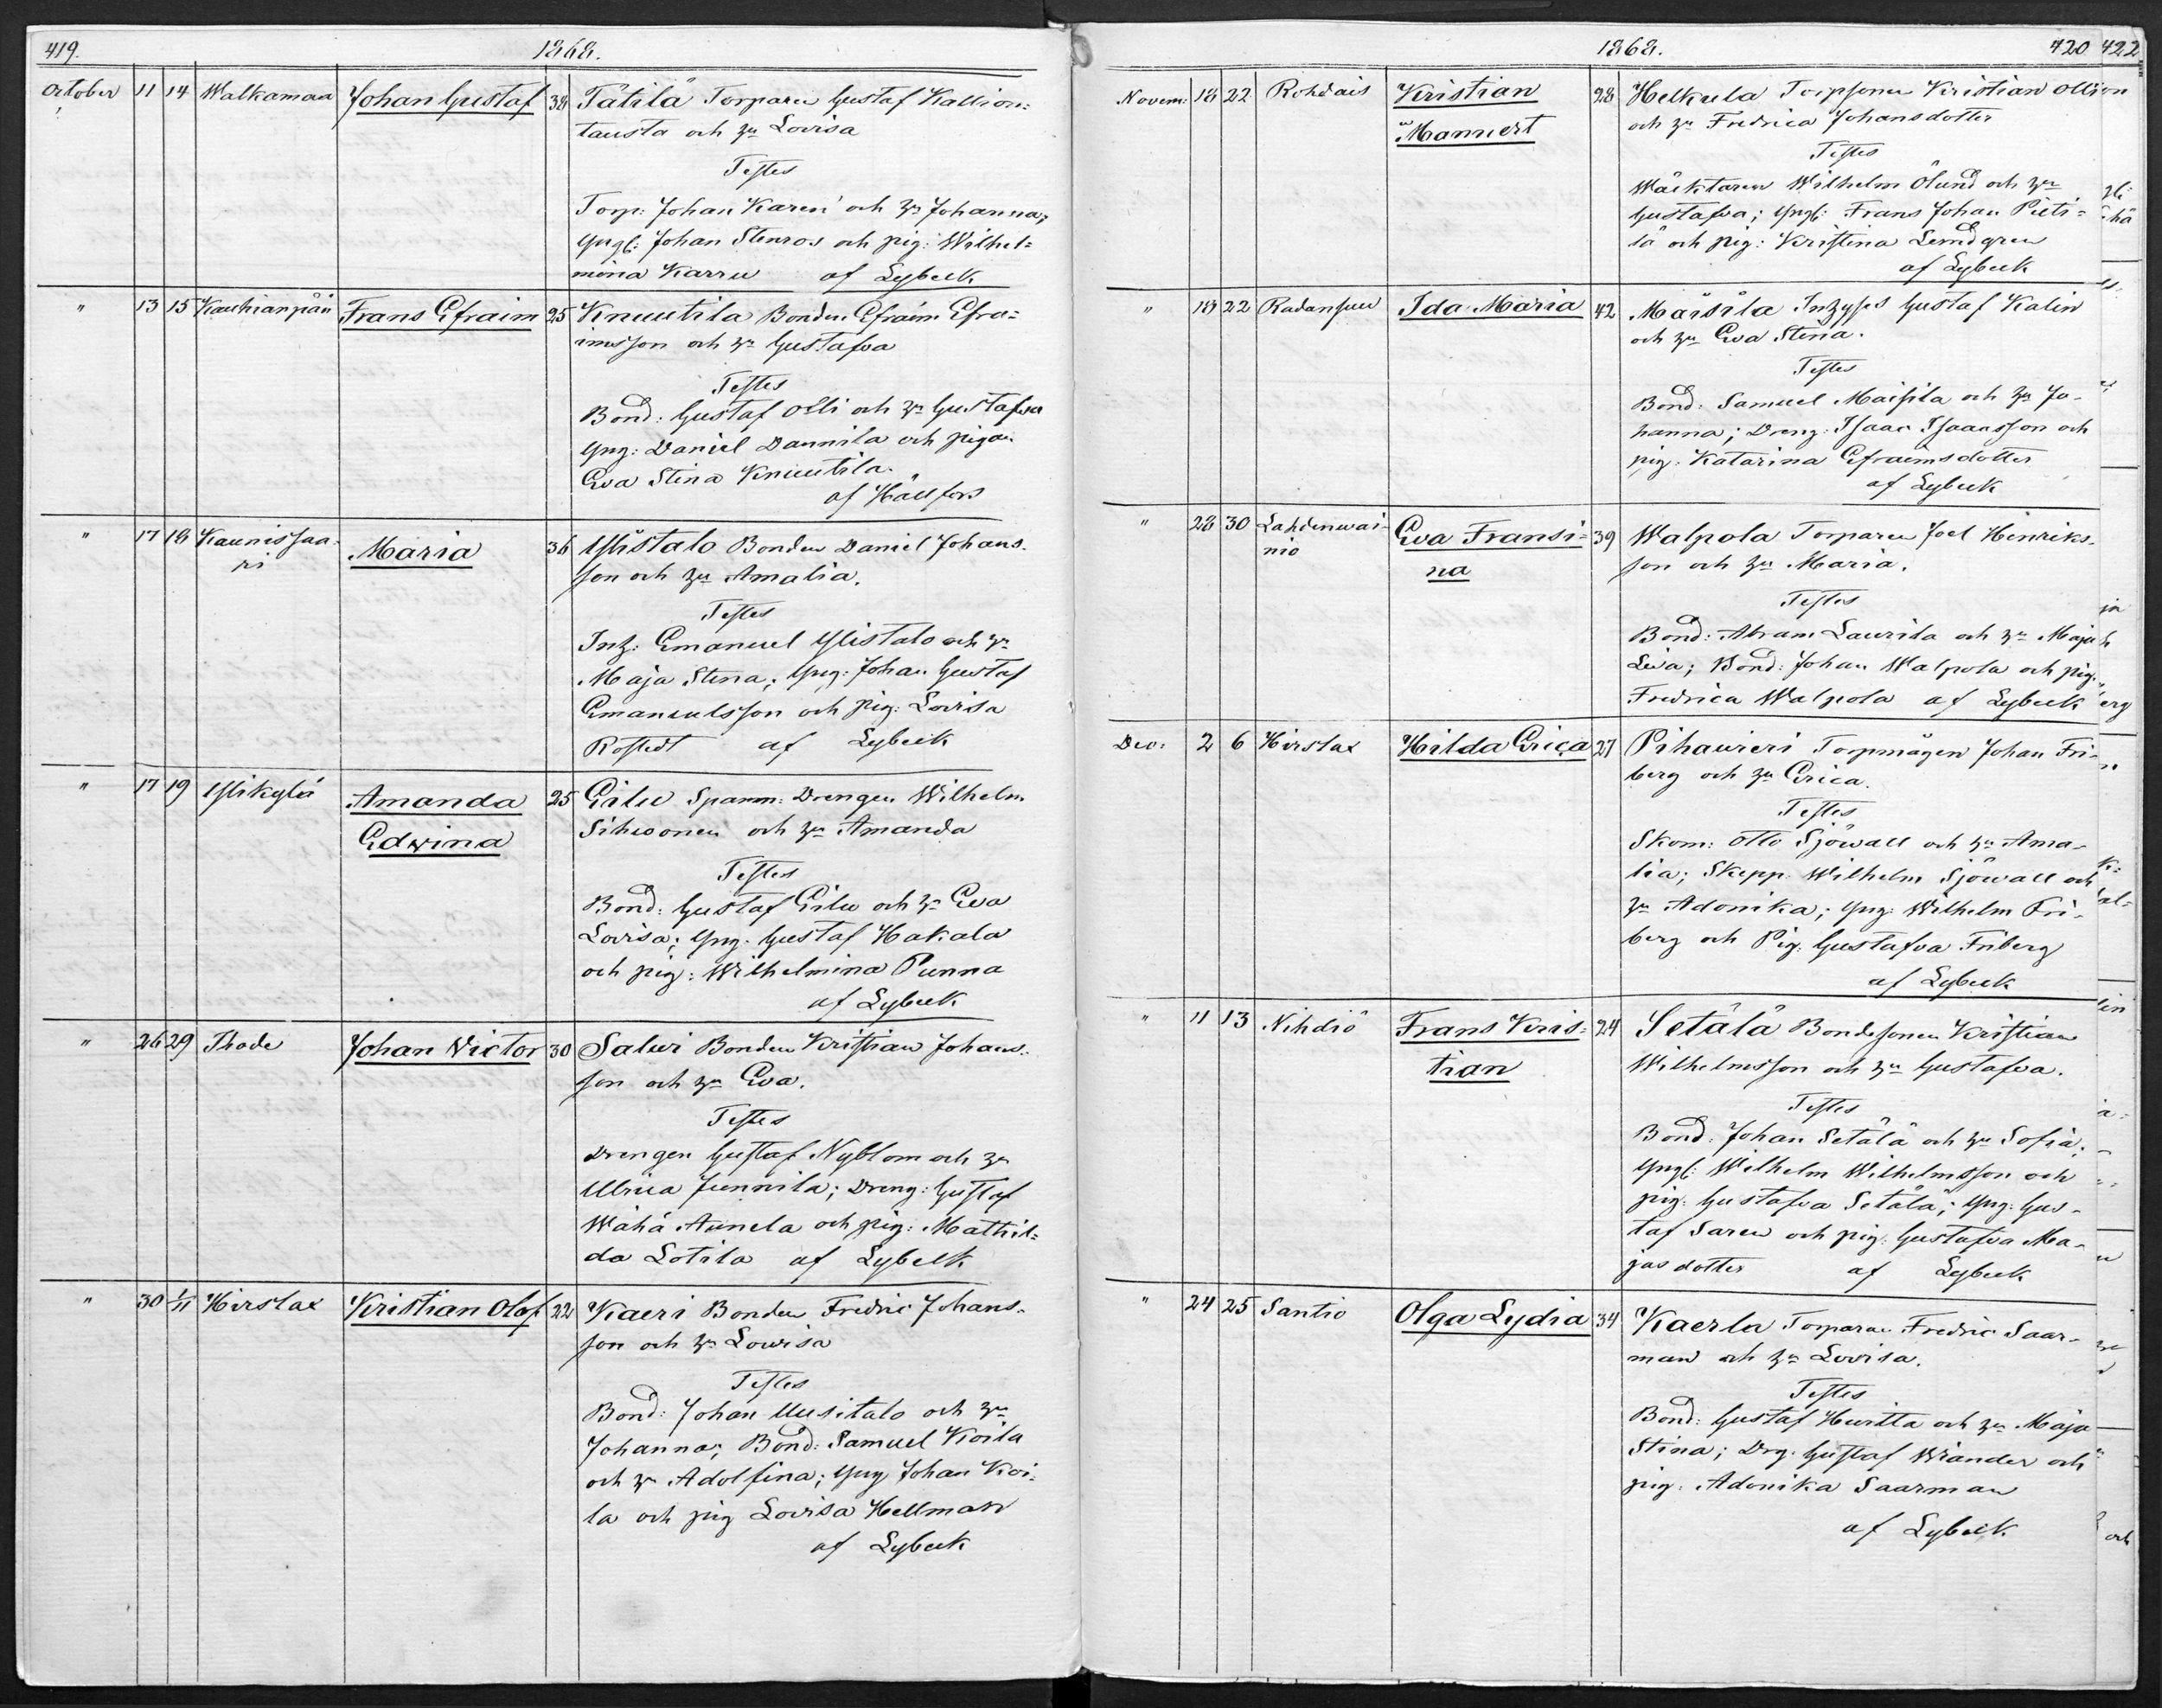 419. 1868.
October 11 14 Walkamaa Johan Gustaf 38 Tätilä Torparen Gustaf Kallion=
tausta och hu Lovisa
Testes
Torp: Johan Karen och hu Johanna;
Yngl: Johan Stenros och pig: Wilhel=
mina Karru af Lybeck
" 13 15 Kauhianpää Frans Efraim 25 Knuutila Bonden Efraim Efra=
imsson och hu Gustafva
Testes
Bond: Gustaf Olli och hu Gustafva
Yng: Daniel Dannila och pigan
Eva Stina Knuutila.
af Hällfors
" 17 18 Kaunissaa- Maria 36 Ylistalo Bonden Daniel Johans-
ri
son och hu Amalia.
Testes
Inh: Emanuel Ylistalo och hu
Maja Stina; Yng: Johan Gustaf
Emanuelsson och pig: Lovisa
Rostedt af Lybeck
" 17 19 Ylikylä Amanda 25 Eilu Spanm: Drengen Wilhelm
Edwina
Sihvonen och hu Amanda
Testes
Bond: Gustaf Eilu och hu Eva
Lovisa; Yng. Gustaf Hakala
och pig: Wilhelmina Punna
af Lybeck
" 26 29 Thode Johan Victor 30 Saluri Bonden Kristian Johans-
son och hu Eva.
Testes
Drengen Gustaf Nyblom och hu
Ulrica Junnila; Dreng: Gustaf
Wähä Aunela och pig: Mathil=
da Lotila af Lybeck
" 30 1/11 Hirslax Kristian Olof 22 Kaeri Bonden Fredric Johans-
son och hu Lovisa
Testes
Bond: Johan Uusitalo och hu
Johanna; Bond: Samuel Koila
och hu Adolfina; Yng Johan Koi-
la och pig Lovisa Hellman
af Lybeck
1868. 420 422
Novem: 18 22 Rohdais Kristian 28 Helkula Torpsonen Kristian Ollion
Mannert
och hu Fredrica Johansdotter
Testes
Wäcktaren Wilhelm Ölund och hu
Gustafva; Yngl: Frans Johan Pieti=
lä och pig: Kristina Lemdgren
af Lybeck
" 18 22 Radansuu Ida Maria 42 Märsilä Inhyses Gustaf Kalin
och hu Eva Stina.
Testes
Bond: Samuel Maisila och hu Jo-
hanna; Dreng: Isaac Isaacsson och
pig: Katarina Efraimsdotter
af Lybeck
" 28 30 Lahdenwai- Eva Fransi= 39 Walpola Torparen Joel Henriks-
nio na
son och hu Maria.
Testes
Bond: Abram Laurila och hu Maja
Lisa; Bond: Johan Walpola och pig.
Fredrica Walpola af Lybeck
Dec: 2 6 Hirslax Hilda Erica 27 Pihawieri Torpmågen Johan Fri-
berg och hu Erica.
Testes
Skom: Otto Sjöwall och hu Ama-
lia; Skepp. Wilhelm Sjöwall och
hu Adonika; Yng: Wilhelm Fri-
berg och Pig: Gustafva Friberg
af Lybeck
" 11 13 Nihdiö Frans Kris= 24 Setälä Bondesonen Kristian
tian
Wilhelmsson och hu Gustafva.
Testes
Bond: Johan Setälä och hu Sofia;
Yngl: Wilhelm Wilhelmsson och
pig: Gustafva Setälä; Yng: Gus-
taf Saren och pig: Gustafva Ma-
jasdotter af Lybeck
" 24 25 Santio Olga Lydia 34 Kaerla Torparen Fredric Saar-
man och hu Lovisa.
Testes
Bond: Gustaf Huritta och hu Maja
Stina; Drg: Gustaf Wiander och
pig: Adonika Saarman
af Lybeck